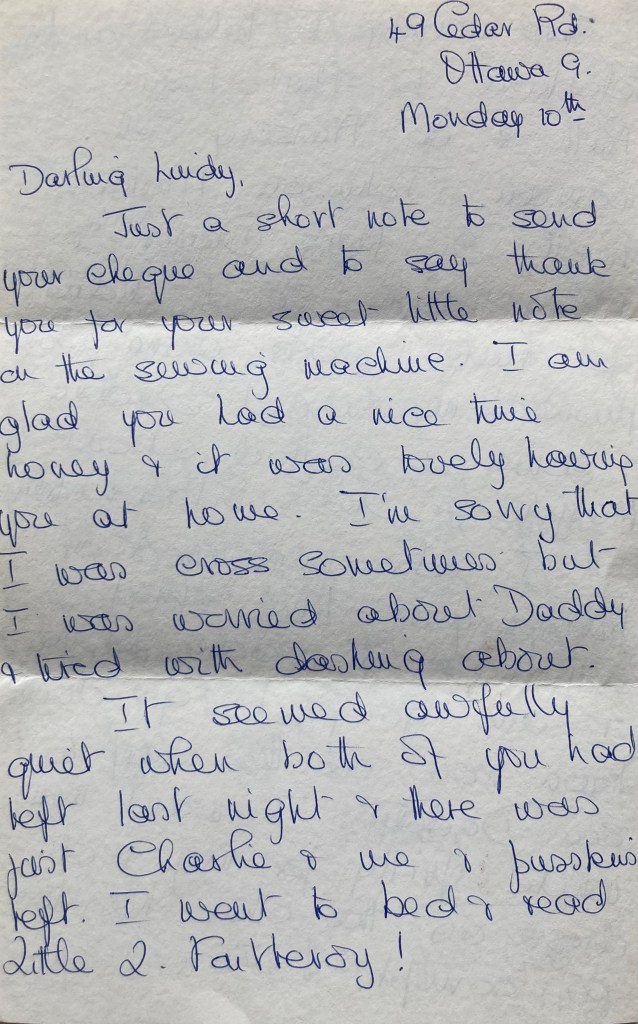 49 Cedar Rd.
Ottawa 9.
Monday 10th
Darling Lindy,
Just a short note to send
your cheque and to say thank
you for your sweet little note
on the sewing machine. I am
glad you had a nice time
honey & it was lovely having
you at home. I'm sorry that
I was cross sometimes but
I was worried about Daddy
& tired with dashing about.
It seemed awfully
quiet when both of you had
left last night & there was
just Charlie & me & pusskins
left. I went to bed & read
Little L. Fautleroy!